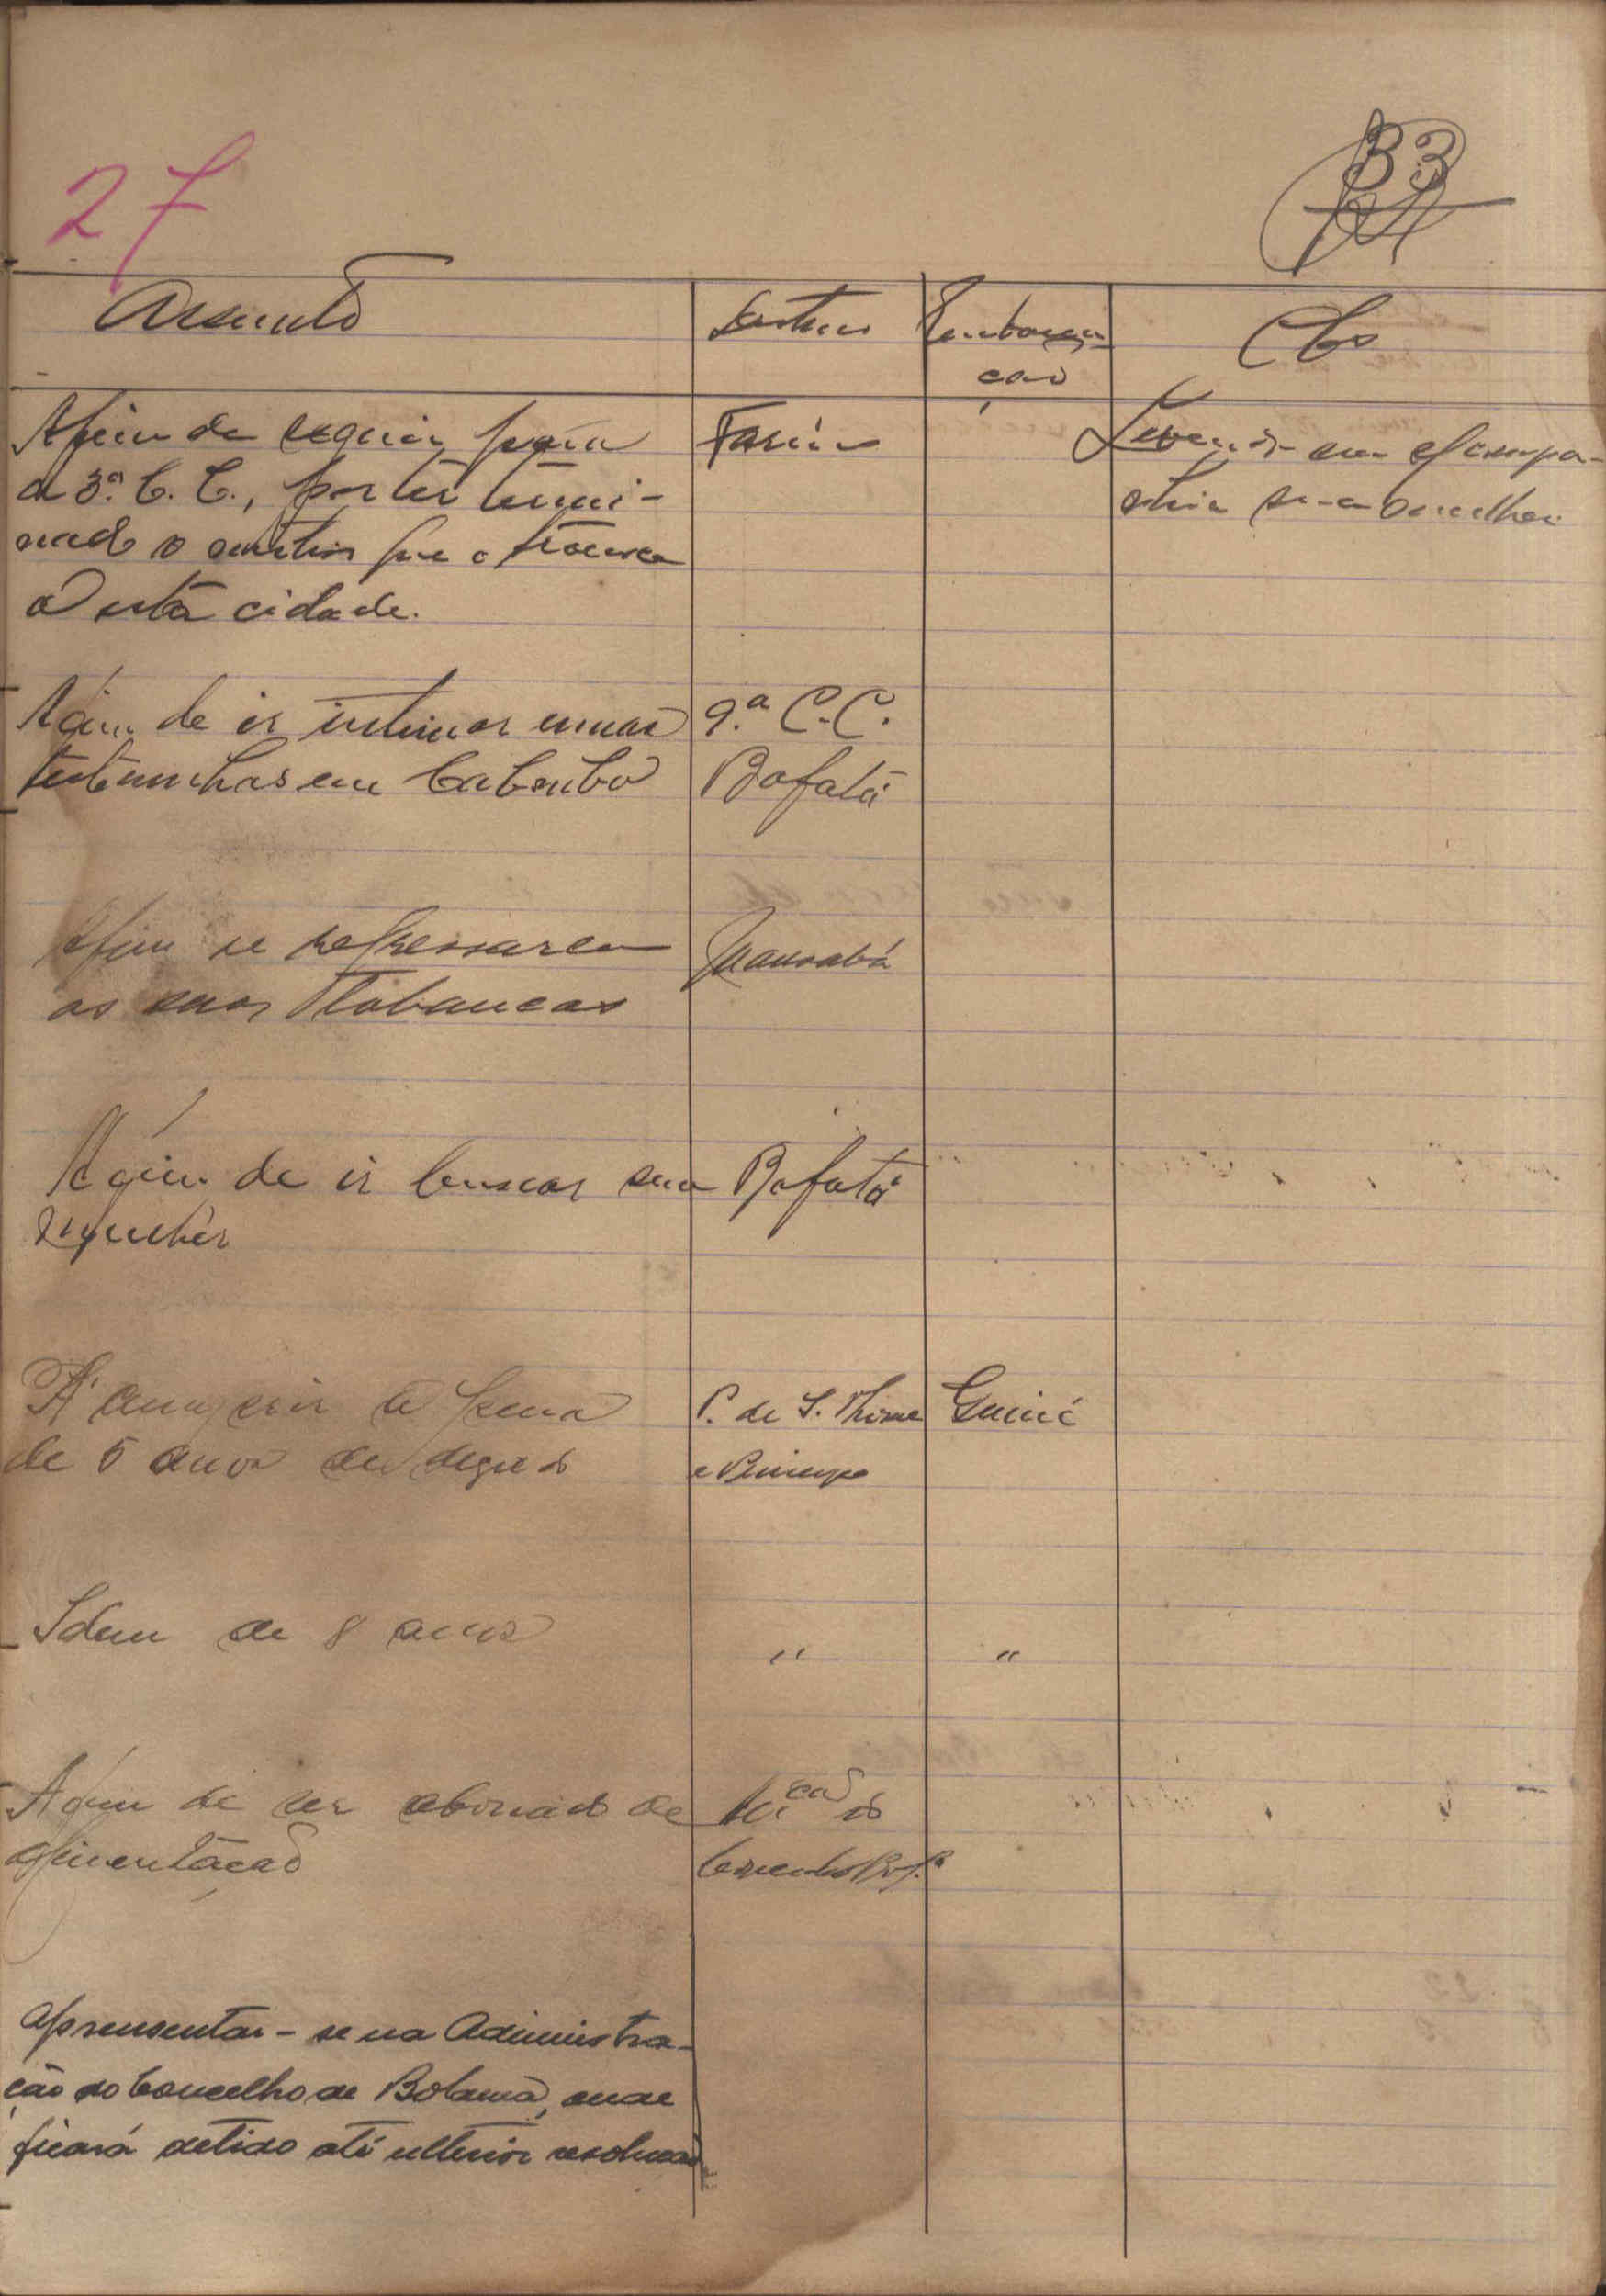 27
33
Assunto
Destino
Embarca-
ção
Obs
Afim de seguir para
a 3ª C. C., por ter termi-
nado o motivo que o trouxe
a esta cidade.
Farim
Levando em compa-
nhia sua mulher
Afim de ir intimar umas
testemunhas em
9.ª C.C.
Bafatá
Afim de regressarem
as suas Tabancas
Mansabá
Afim de ir buscar sua
mulher
Bafatá
A cumprir a pena
de 5 anos de degredo
P. de S. Thomé
e Principe
Guiné
Idem de 8 anos
"
"
Afim de ser abonado de
alimentação
apresentar-se na Administra-
ção do Concelho de Bolama, onde
ficará detido até ulterior resolução